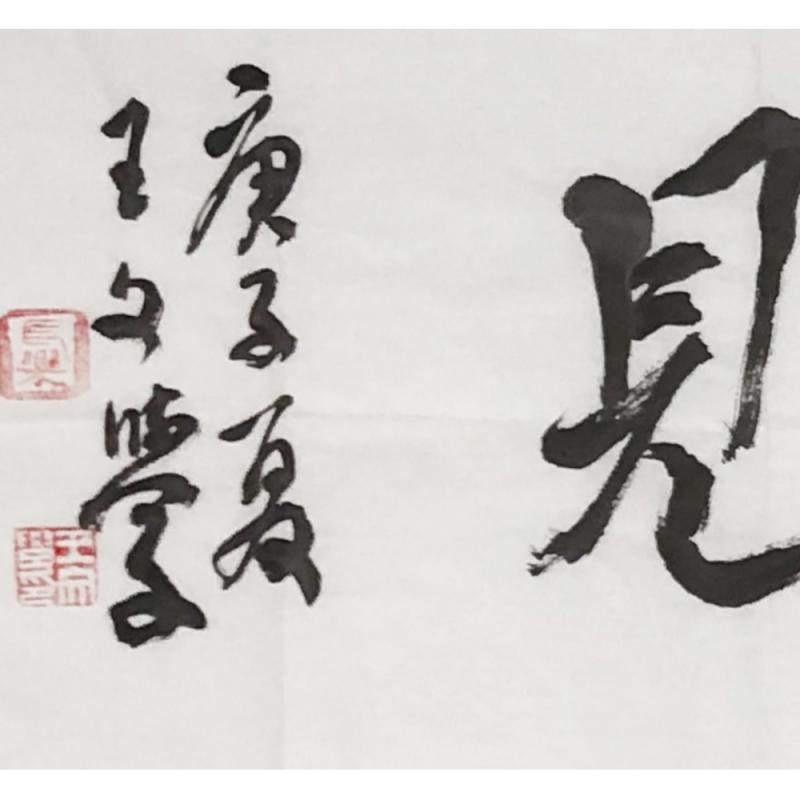 見
庚子夏
王文學